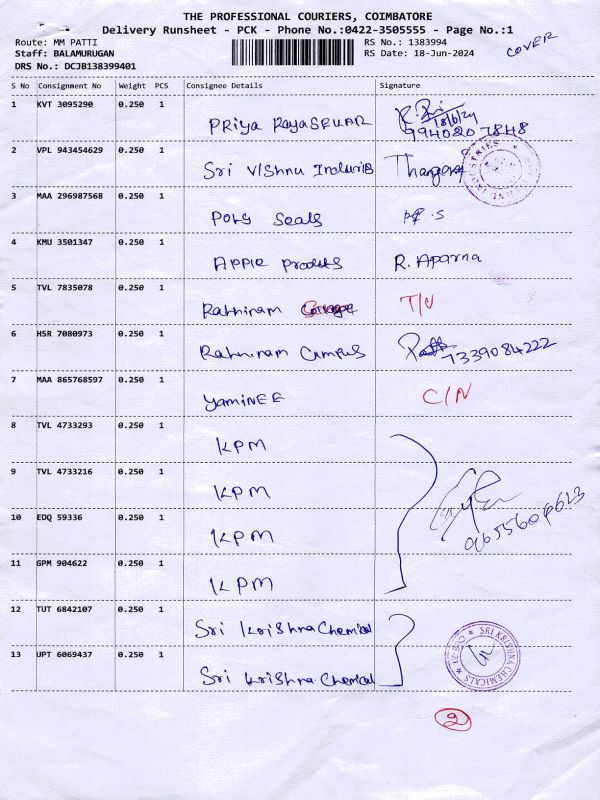 THE PROFESSIONAL COURIERS, COIMBATORE
Delivery Runsheet - PCK - Phone No.:0422-3505555 - Page No.:1
Route: MM PATTI RS No.: 1383994
Staff: BALAMURUGAN RS Date: 18-Jun-2024
DRS No.: DCJB138399401
COVER
S No Consignment No Weight PCS Consignee Details Signature
1 KVT 3095290 0.250 1
PRiya RayaSEUAR 18/6/24
9940207848
2 VPL 943454629 0.250 1
Sri VIShnu
3 MAA 296987568 0.250 1
Poly Seals
4 KMU 3501347 0.250 1
APPle R. Aparna
5 TVL 7835078 0.250 1
Rathinam
6 HSR 7080973 0.250 1
Rathinam Campus 7339084222
7 MAA 865768597 0.250 1
YaminEE C/N
8 TVL 4733293 0.250 1
KPM
9 TVL 4733216 0.250 1
KPM
10 EDQ 59336 0.250 1
KPM 9655606613
11 GPM 904622 0.250 1
KPM
12 TUT 6842107 0.250 1
Sri KriShna Chemical
13 UPT 6069437 0.250 1
Sri KriShna Chemical
SRI KRISHNA CHEMICALS
2